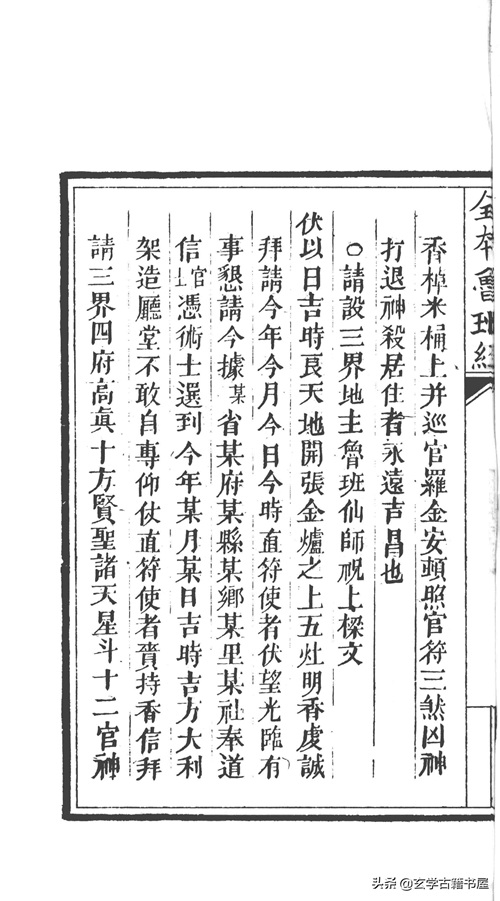 全本魯班經
香棹米桶上并巡官羅金安頓照官符三煞凶神
打退神殺居住者永遠吉昌也
○請設三界地主魯班仙師祝上樑文
伏以日吉時良天地開張金爐之上五炷明香虔誠
拜請今年今月今日今時直符使者伏望光臨有
事懇請今據某省某府某縣某鄉某里某社奉道
信官憑術士選到今年某月某日吉時吉方大利
架造廳堂不敢自專仰仗直符使者賫持香信拜
請三界四府高眞十方賢聖諸天星斗十二宮神
头条@玄学古籍书屋